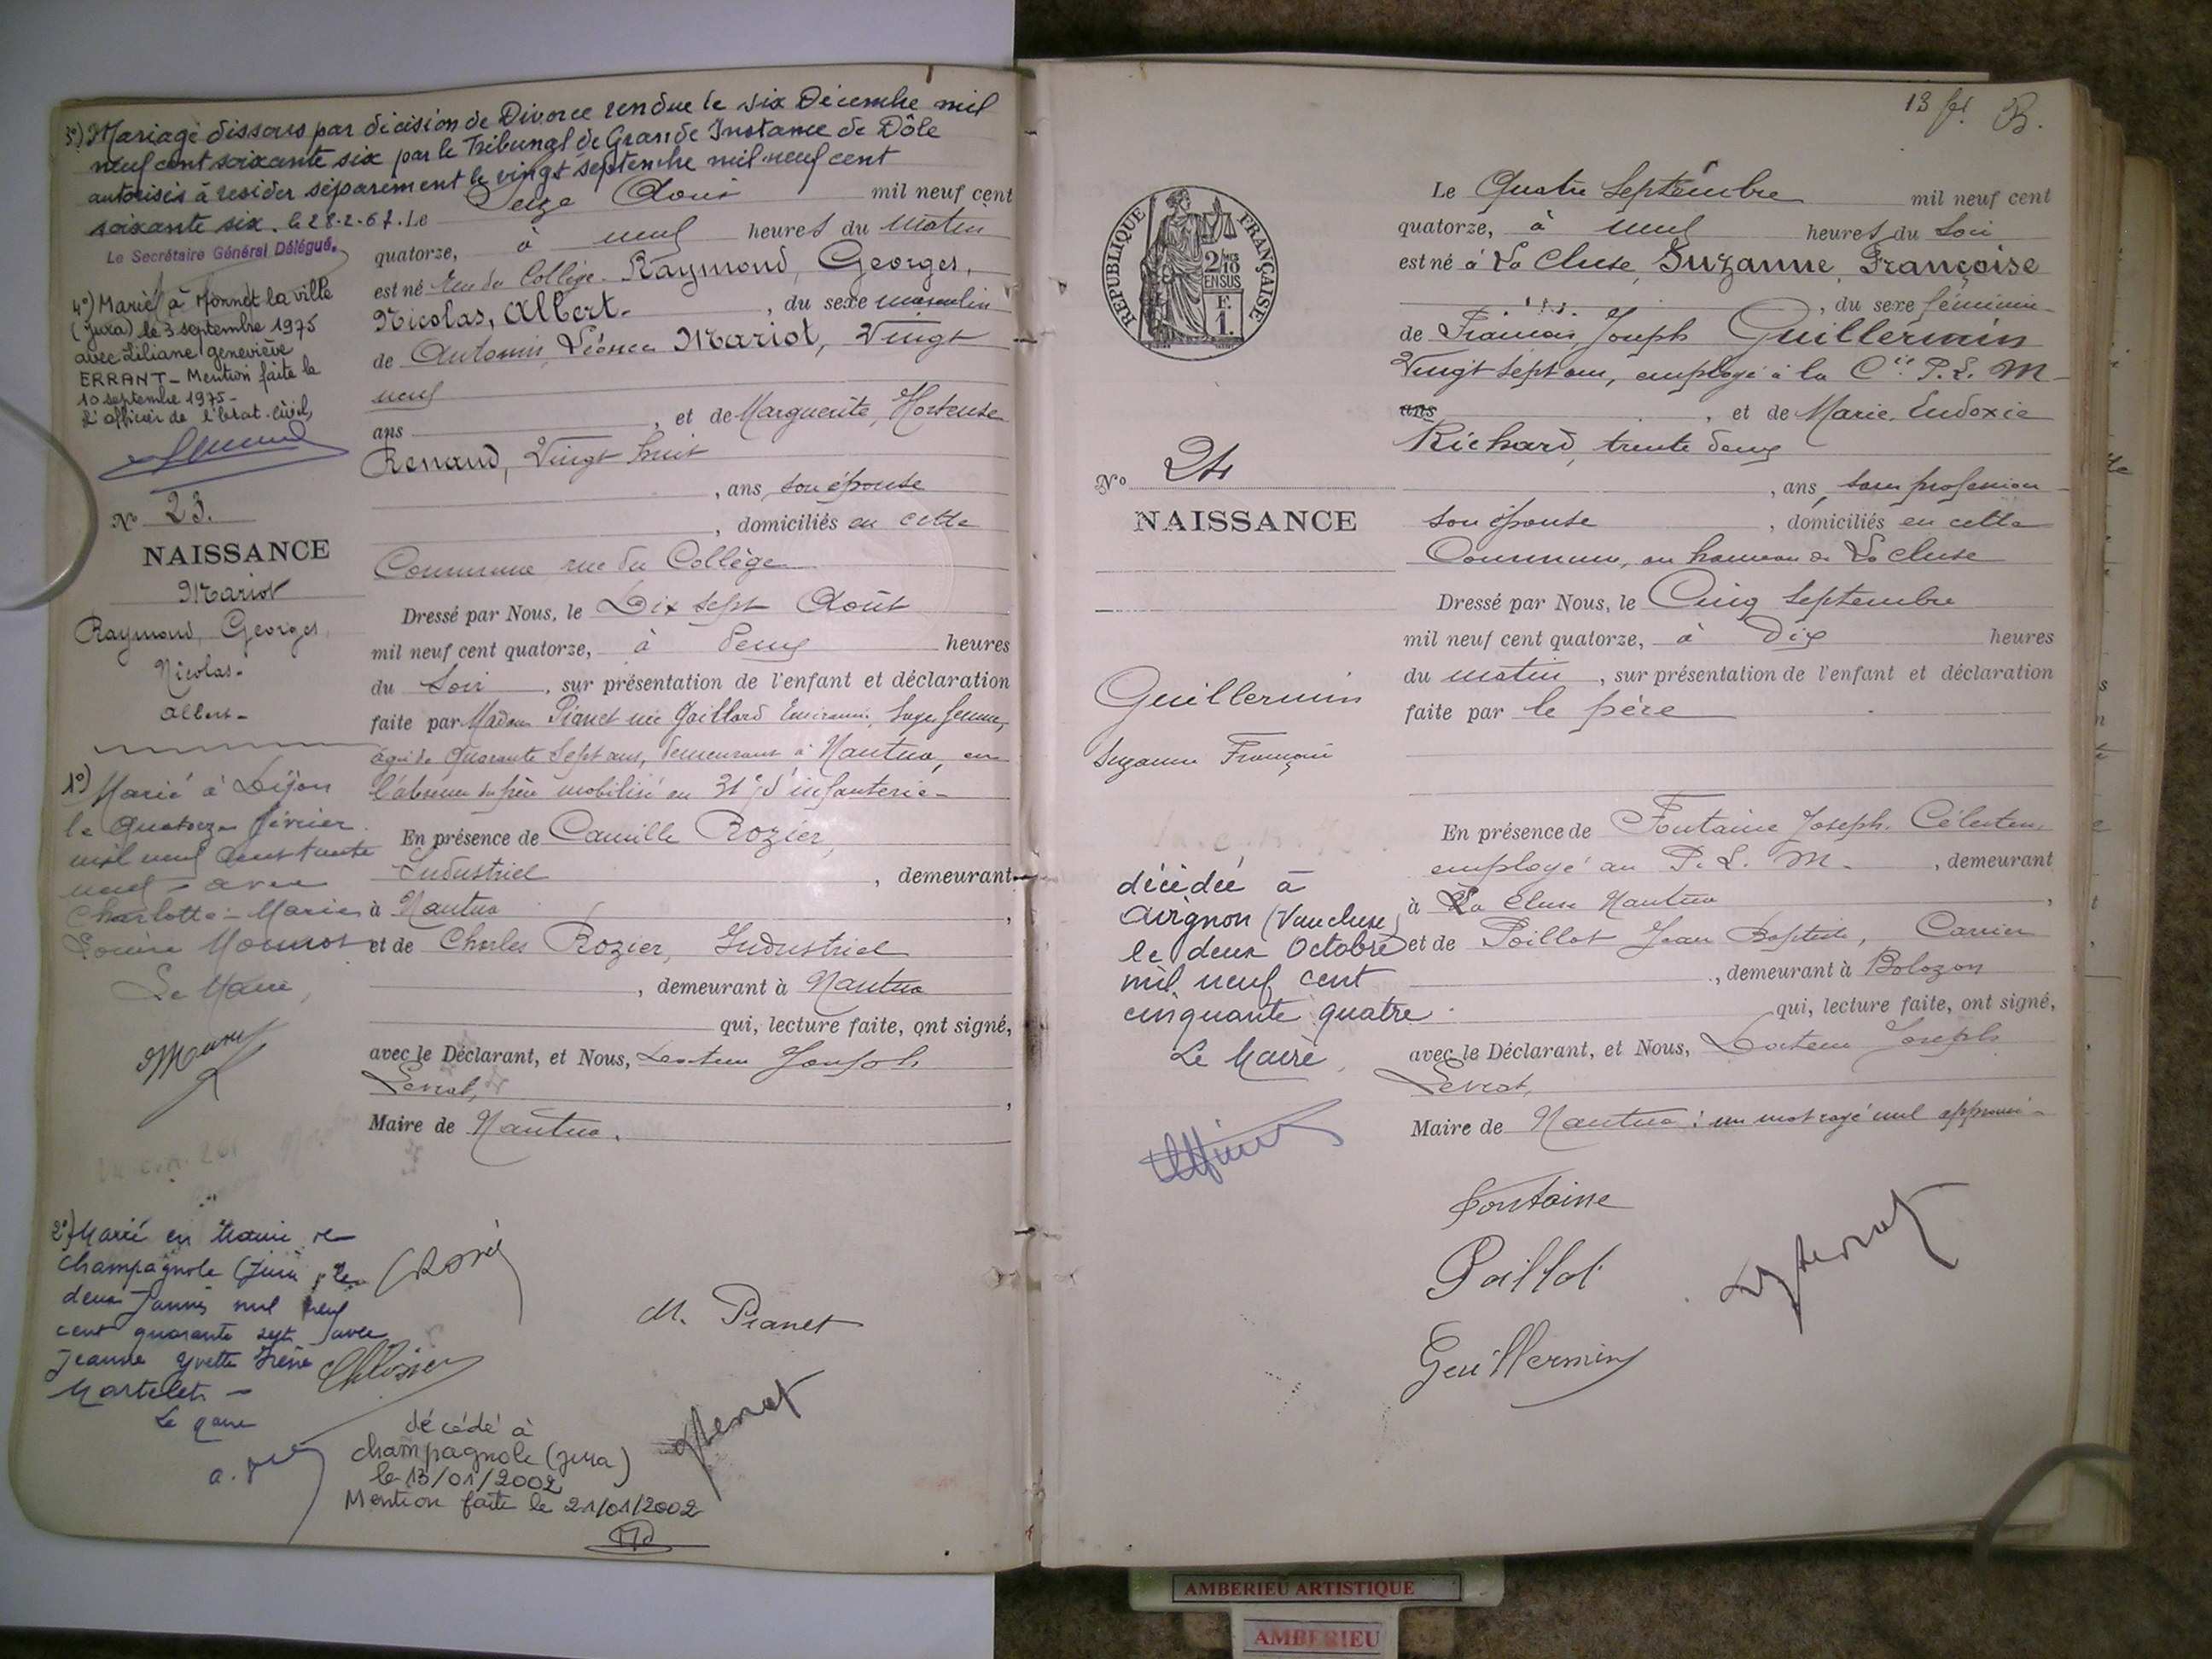 3°) Mariage dissous par décision de Divorce rendue le six Décembre mil
neuf cent soixante six par le Tribunal de Grande Instance de Dôle
autorisés à résider séparément le vingt septembre mil neuf cent
soixante six. le 28.2.67.
Le Secrétaire Général Délégué,
4°) Marié à Monnet la ville
(Jura) le 3 septembre 1975
avec Liliane geneviève
ERRANT - Mention faite le
10 septembre 1975 -
L'officier de l'état-civil,
N° 23.
NAISSANCE
Mariot
Raymond, Georges,
Nicolas.
Albert.
1°) Marié à Dijon
le quatorze février
mil neuf cent trente
neuf - avec
Charlotte - Marie
Louise
Le Maire,
2°) Marié en Mairie de
Champagnole (Jura) le
deux Janvier mil neuf
cent quarante sept avec
Jeanne Yvette Irène
Martelet -
Le Seize Août mil neuf cent
quatorze, à neuf heures du matin
est né rue du Collège. Raymond, Georges,
Nicolas, Albert. , du sexe masculin
de Antonin, Léonce Mariot, Vingt
neuf
ans , et de Marguerite, Hortense
Renaud, Vingt huit
, ans, son épouse
, domiciliés en cette
Commune rue du Collège
Dressé par Nous, le Dix sept Août
mil neuf cent quatorze, à deux heures
du Soir , sur présentation de l'enfant et déclaration
faite par Madame Pianet née Gaillard Sage femme,
agée de quarante sept ans, demeurant à Nantua, en
l'absence du père mobilisé au d'infanterie -
En présence de Camille Rozier,
Industriel , demeurant
à Nantua ,
et de Charles Rozier, Industriel
, demeurant à Nantua
qui, lecture faite, ont signé,
avec le Déclarant, et Nous, Docteur Joseph
Levrat, ,
Maire de Nantua.
M. Pianet
décédé à
champagnole (jura)
le 13/01/2002
Mention faite le 21/01/2002
13 fet B.
RÉPUBLIQUE FRANÇAISE
2/10 EN SUS
F. 1.
N° 24
NAISSANCE
Guillermin
Suzanne Françoise
décédée à
Avignon (Vaucluse)
le deux Octobre
mil neuf cent
cinquante quatre.
Le Maire,
Le Quatre Septembre mil neuf cent
quatorze, à neuf heures du Soir
est né à La Cluse, Suzanne, Françoise
, du sexe féminin
de François Joseph Guillermin
Vingt sept ans, employé à la Cie P. L. M -
ans , et de Marie. Eudoxie
Richard, trente deux
, ans, sans profession
son épouse , domiciliés en cette
Commune, au hameau de La Cluse
Dressé par Nous, le Cinq Septembre
mil neuf cent quatorze, à dix heures
du matin , sur présentation de l'enfant et déclaration
faite par le père
En présence de Fontaine Joseph. Célestin
employé au P. L. M - , demeurant
à La Cluse Nantua ,
et de Poillot Jean Baptiste, Carrier
, demeurant à Bolozon
qui, lecture faite, ont signé,
avec le Déclarant, et Nous, Docteur Joseph
Levrat,
Maire de Nantua : un mot rayé nul approuvé -
Fontaine
Poillot
Guillermin
AMBERIEU ARTISTIQUE
AMBERIEU